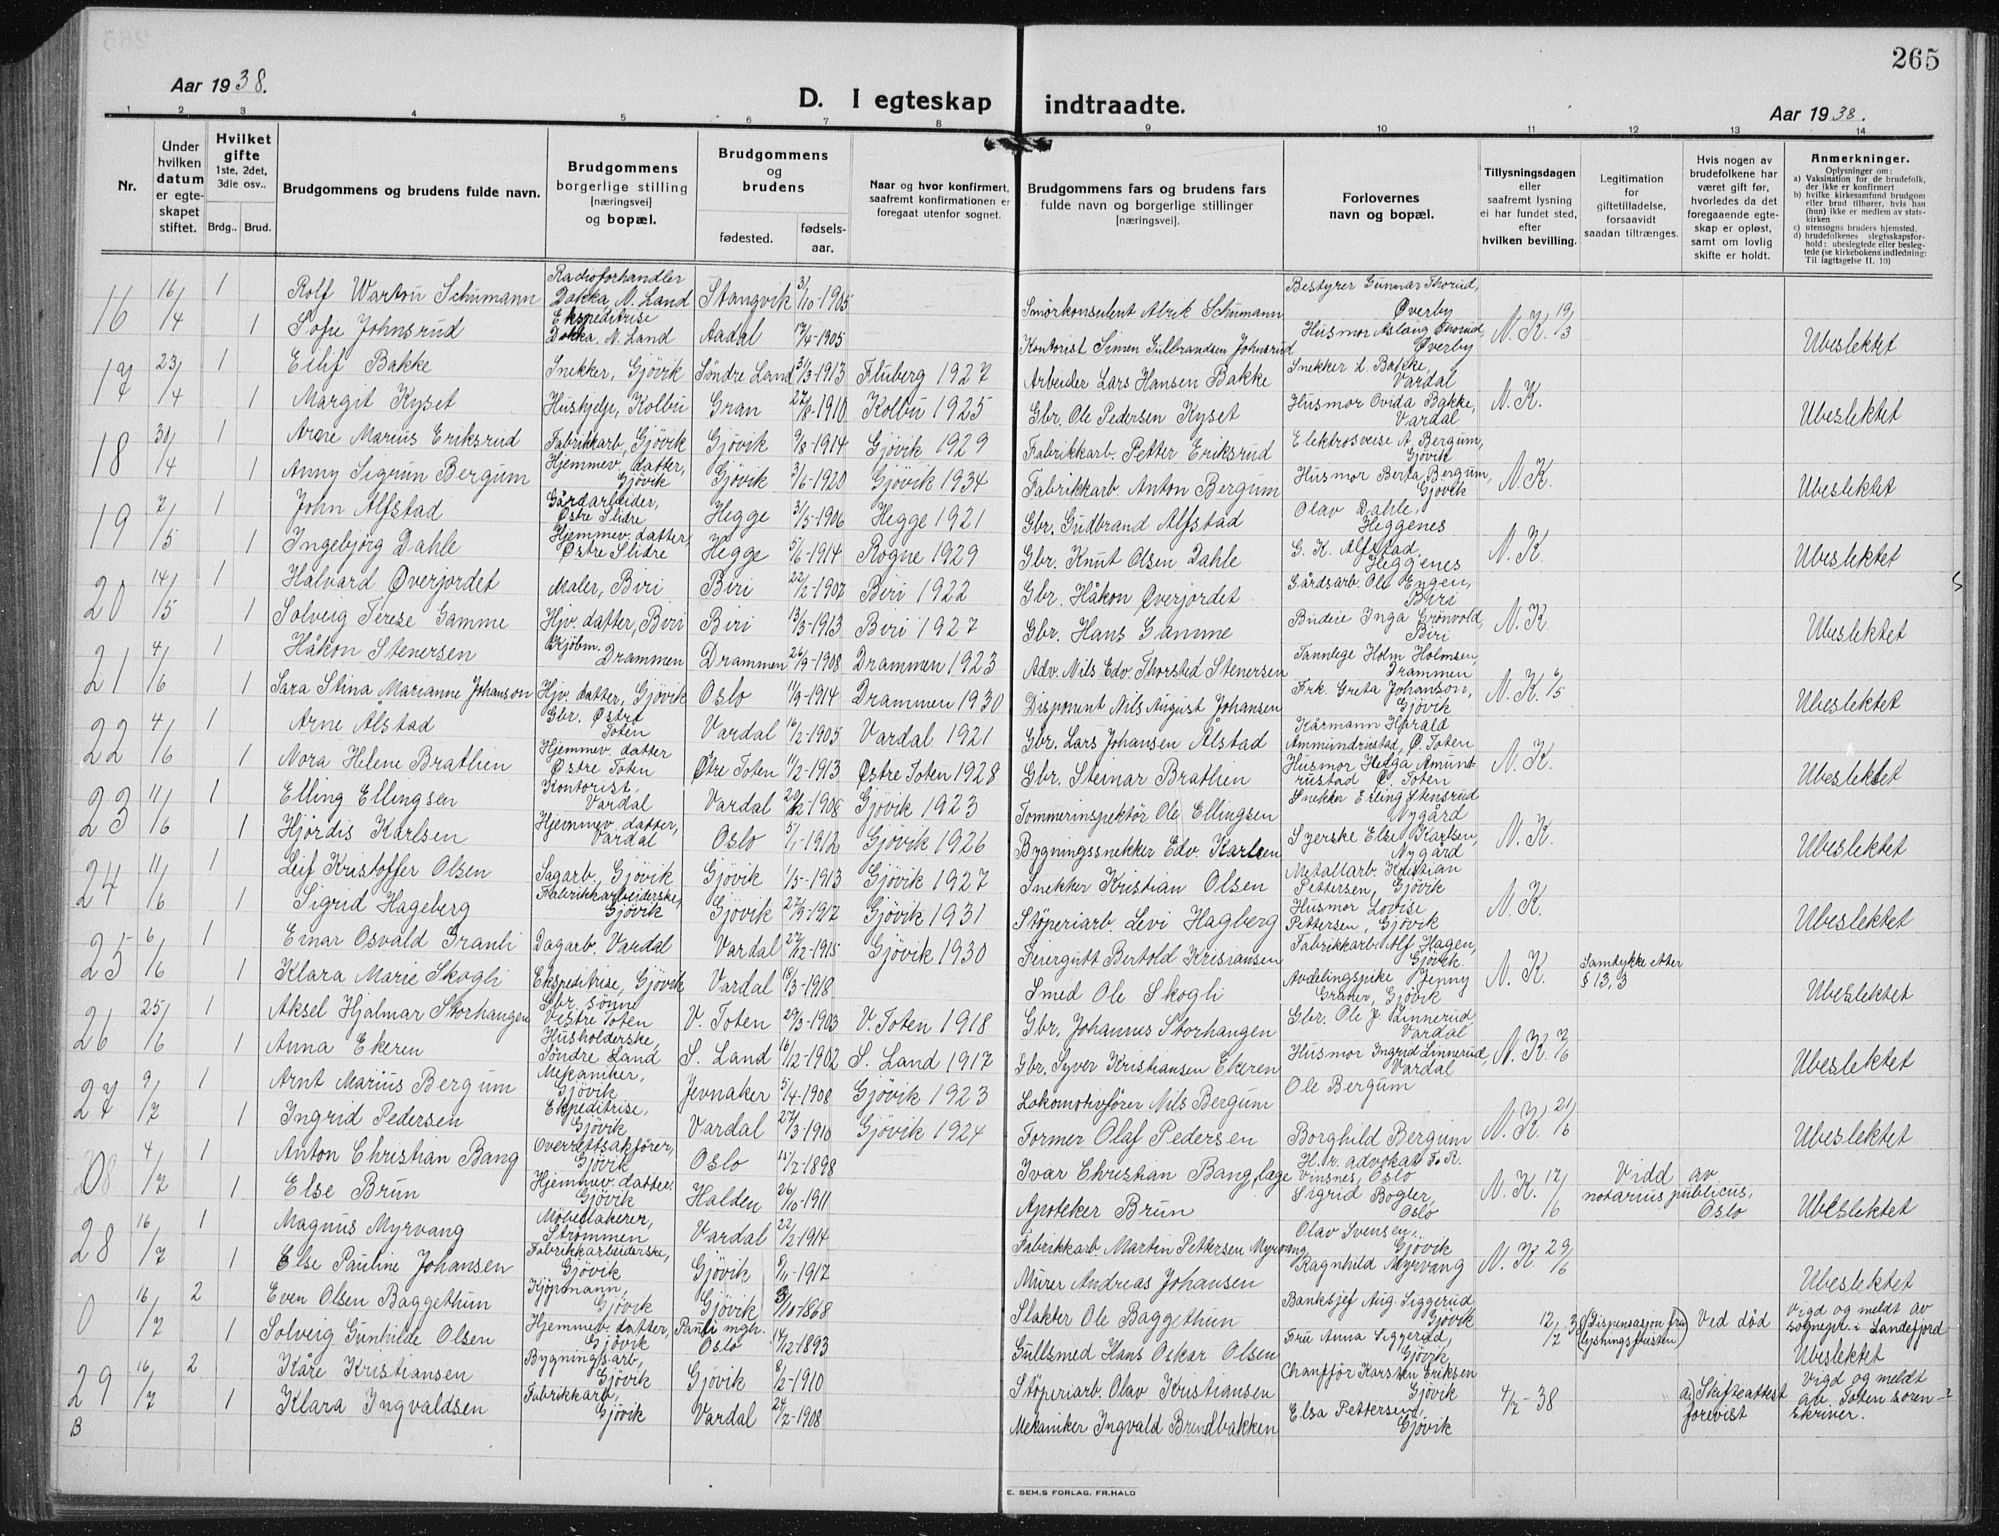 265
Aar 1938.
D. I egteskap indtraadte.
Aar 1938.
1 2 3 4 5 6 7 8 9 10 11 12 13 14
Nr.
Under hvilken datum er egteskapet stiftet.
Hvilket gifte 1ste, 2det, 3die osv..
Brdg.. Brud.
Brudgommens og brudens fulde navn.
Brudgommens borgerlige stilling [næringsvei] og bopæl.
Brudgommens og brudens
fødested. fødselsaar.
Naar og hvor konfirmert, saafremt konfirmationen er foregaat utenfor sognet.
Brudgommens fars og brudens fars fulde navn og borgerlige stillinger [næringsvei].
Forlovernes navn og bopæl.
Tillysningsdagen eller saafremt lysning ei har fundet sted, efter hvilken bevilling.
Legitimation for giftetilladelse, forsaavidt saadan tiltrænges.
Hvis nogen av brudefolkene har været gift før, hvorledes da det foregaaende egteskap er opløst, samt om lovlig skifte er holdt.
Anmerkninger.
Oplysninger om:
a) Vaksination for de brudefolk, der ikke er konfirmert
b) hvilke kirkesamfund brudgom eller brud tilhører, hvis han (hun) ikke er medlem av statskirken
c) utensogns bruders hjemsted.
d) brudefolkenes slegtsskapsforhold: ubeslegtede eller beslegtede (se kirkebokens indledning: Til iagttagelse II. 10)
16 16/4 1 Rolf Wartou Schumann Radioforhandler Dokka, N. Land Stangvik 3/10-1905 Smörkonsulent Alrik Schumann Bestyrer Gunnar Thorud, Øverby N. K. 19/3
1 Sofie Johnsrud Ekspeditrise Dokka, N. Land Aadal 17/4-1905 Kontorist Simen Gulbrandsen Johnsrud Husmor Aslaug Thorud, Øverby Ubeslektet
17 23/4 1 Eilif Bakke Snekker, Gjövik Söndre Land 31/3-1913 Fluberg 1927 Arbeider Lars Hansen Bakke Snekker L. Bakke, Vardal N. K.
1 Margit Kyset Hushjelp, Kolbu Gran 27/8-1910 Kolbu 1925 Gbr. Ole Pedersen Kyset Husmor Ovida Bakke, Vardal Ubeslektet
18 30/4 1 Arne Marius Eriksrud Fabrikkarb, Gjövik Gjövik 9/8-1914 Gjövik 1929 Fabrikkarb. Petter Eriksrud Elektrosveise A. Bergum, Gjövik N. K.
1 Anny Sigrun Bergum Hjemmev. datter, Gjövik Gjövik 3/6-1920 Gjövik 1934 Fabrikkarb. Anton Bergum Husmor Berta Bergum, Gjövik Ubeslektet
19 7/5 1 John Alfstad Gårdarbeider, Østre Slidre Hegge 3/5-1906 Hegge 1921 Gbr. Gudbrand Alfstad Olav Dahle, Heggenes N. K.
1 Ingebjörg Dahle Hjemmev. datter, Østre Slidre Hegge 5/6-1914 Rogne 1929 Gbr. Knut Olsen Dahle G. K. Alfstad, Heggenes Ubeslektet
20 14/5 1 Halvard Øverjordet Maler, Biri Biri 22/2-1907 Biri 1922 Gbr. Håkon Øverjordet Gårdsarb. Ole Engen, Biri N. K.
1 Solveig Terese Gamme Hjv. datter, Biri Biri 13/3-1913 Biri 1927 Gbr. Hans Gamme Budeie Inga Grönvold, Biri Ubeslektet
21 4/6 1 Håkon Stenersen Kjöbm. Drammen Drammen 26/9-1908 Drammen 1923 Adv. Nils Edv. Thorsted Stenersen Tannlege Holm Holmsen, Drammen N. K. 6/5
1 Sara Stina Marianne Johanson Hjv. datter, Gjövik Oslo 11/9-1914 Drammen 1930 Disponent Nils August Johansen Frk. Greta Johanson, Gjövik Ubeslektet
22 4/6 1 Arne Ålstad Gbr. Østre Toten Vardal 16/2-1905 Vardal 1921 Gbr. Lars Johansen Ålstad Kårmann Harald Ammundrustad, Ø. Toten N. K.
1 Nora Helene Brathen Hjemmev. datter Østre Toten Østre Toten 11/2-1913 Østre Toten 1928 Gbr. Steinar Brathen Husmor Helga Amundrustad Ø. Toten Ubeslektet
23 11/6 1 Elling Ellingsen Kontorist, Vardal Vardal 20/12-1908 Gjövik 1923 Tommerinspektör Ole Ellingsen Snekker Erling Stensrud Nygård N. K.
1 Hjördis Karlsen Hjemmev. datter, Vardal Oslo 5/1-1912 Gjövik 1926 Bygningssnekker Edv. Karlsen Syerske Else Karlsen, Nygård Ubeslektet
24 11/6 1 Leif Kristoffer Olsen Sagarb. Gjövik Gjövik 1/5-1913 Gjövik 1927 Snekker Kristian Olsen Metallarb. Kristian Pettersen, Gjövik N. K.
1 Sigrid Hageberg Fabrikkarbeiderske, Gjövik Gjövik 27/9-1917 Gjövik 1931 Stöperiarb. Levi Hagberg Husmor Lovise Pettersen, Gjövik Ubeslektet
25 6/6 1 Einar Osvald Granli Dagarb. Vardal Vardal 27/12-1915 Gjövik 1930 Feiergutt Bertold Kristiansen Fabrikkarb. Alf Hagen, Gjövik N. K. Samtykke etter § 13, 3
1 Klara Marie Skogli Ekspeditrise, Gjövik Vardal 18/3-1918 Smed Ole Skogli Avdelingspike Jenny Graner, Gjövik Ubeslektet
26 25/6 1 Aksel Hjalmar Storhangen Gbr. sönn Vestre Toten V. Toten 29/3-1903 V. Toten 1918 Gbr. Johannes Storhangen Gbr. Ole J. Linnerud, Vardal N. K. 7/6
1 Anna Ekeren Husholderske, Söndre Land S. Land 16/12-1902 S. Land 1917 Gbr. Syver Kristiansen Ekeren Husmor Ingrid Linnerud, Vardal Ubeslektet
27 9/7 1 Arnt Marius Bergum Mekaniker, Gjövik Jevnaker 5/4-1908 Gjövik 1923 Lokomotivförer Nils Bergum Ole Bergum N. K. 21/6
1 Ingrid Pedersen Ekspeditrise, Gjövik Vardal 27/3-1910 Gjövik 1924 Former Olaf Pedersen Borghild Bergum Ubeslektet
0 4/7 1 Anton Christian Bang Overrettsakförer, Gjövik Oslo 15/2-1898 Ivar Christian Bang, læge H. r. advokat F. R. Vinsnes, Oslo N. K. 17/6 Vidd av notarius publicus, Oslo
1 Else Brun Hjemmev. datter. Gjövik Halden 26/10-1911 Apoteker Brun Sigrid Bogler, Oslo Ubeslektet
28 16/7 1 Magnus Myrvang Möbellakerer, Strömmen Vardal 22/2-1914 Fabrikkarb. Martin Pettersen Myrvang Olav Svensen, Gjövik N. K. 29/6
1 Else Pauline Johansen Fabrikkarbeiderske, Gjövik Gjövik 8/11-1917 Murer Andreas Johansen Ragnhild Myrvang Ubeslektet
0 16/7 2 Even Olsen Baggethun Kjöpmann, Gjövik Gjövik 3/10-1868 Slakter Ole Baggethun Banksjef Aug. Siggerud Gjövik 12/7-38 (Dispensasjon fra lysningsfristen) Ved död Vigd og meldt av sognepr. i Sandefjord
1 Solveig Gunhilde Olsen Hjemmev. datter, Gjövik Pauli mgh. Oslo 14/12-1893 Gullsmed Hans Oskar Olsen Fru Anna Siggerud, Gjövik Ubeslektet
29 B 16/7 2 Kåre Kristiansen Bygningsarb, Gjövik Gjövik 8/2-1910 Stöperiarb. Olav Kristiansen Chauffför Karsten Eriksen Gjövik 4/7-38 " a) Skifteattest forevist Vigd og meldt av Toten sorenskriver.
1 Klara Ingvaldsen Fabrikkarb, Gjövik Vardal 24/2-1908 Mekaniker Ingvald Brendbakken Elsa Pettersen, Gjövik
E. SEM.S FORLAG. FR.HALD